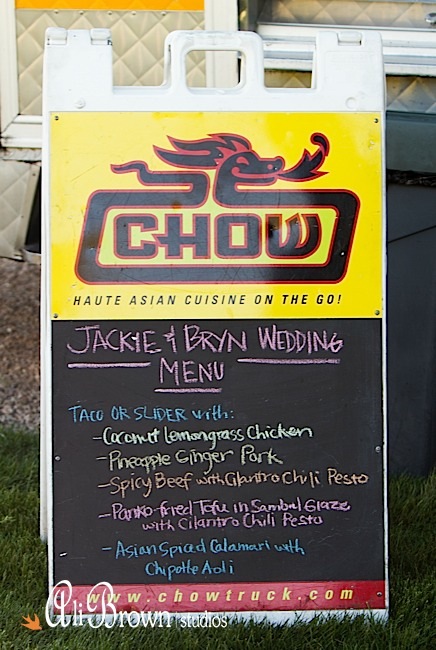 CHOW
HAUTE ASIAN CUISINE ON THE GO!
JACKIE & BRYN WEDDING
MENU
TACO OR SLIDER with:
- Coconut Lemongrass Chicken
- Pineapple Ginger Pork
- Spicy Beef with Cilantro Chili Pesto
- Panko-fried Tofu in Sambal Glaze
with Cilantro Chili Pesto
- Asian Spiced Calamari with
Chipotle Aoli
www.chowtruck.com
Ali Brown studios